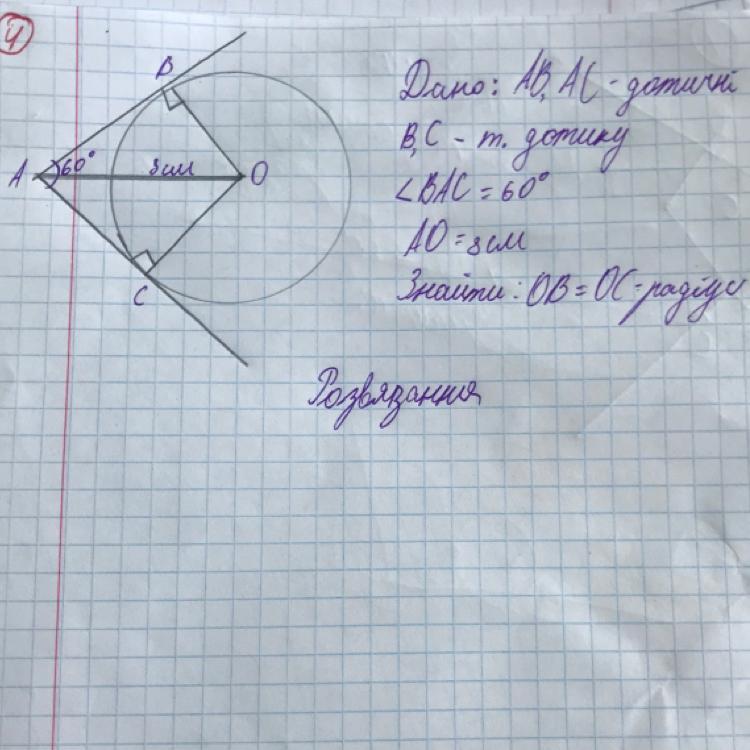 4
B
A 60° 8см O
C
Дано: AB, AC - дотичні
B,C - т. дотику
∠BAC = 60°
AO = 8см
Знайти: OB = OC - радіус
Розвязання